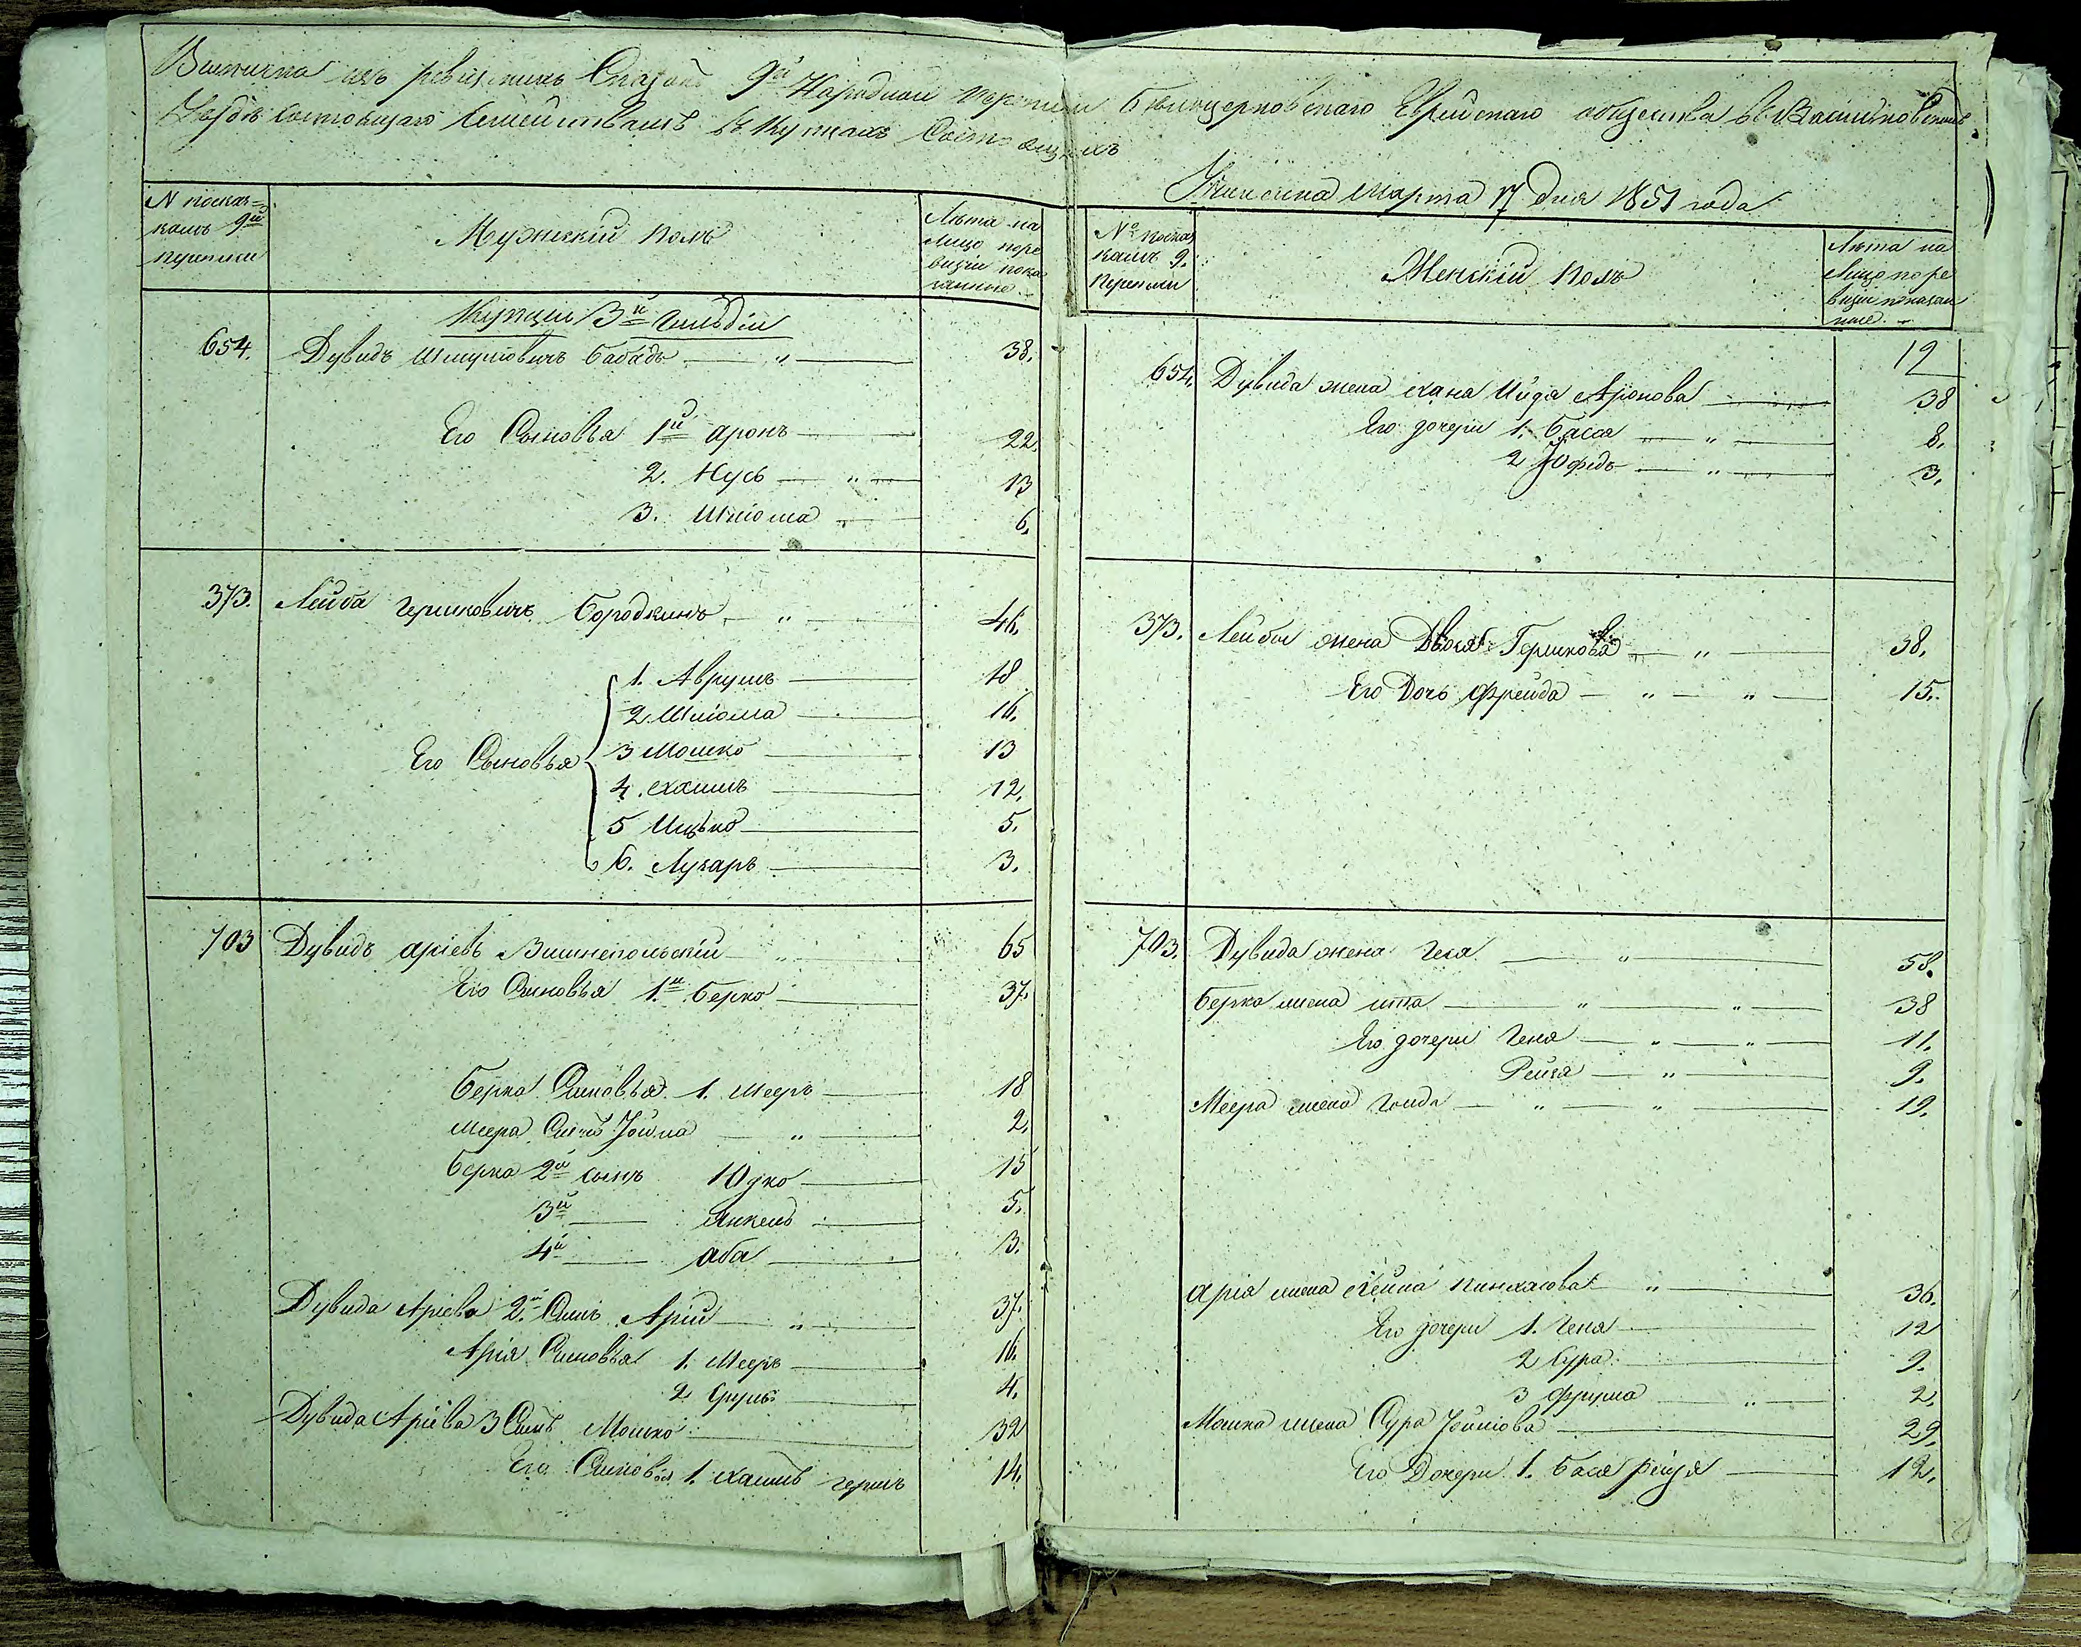 Выписка изъ ревизскихъ Сказокъ 9й Народной переписи Бѣлоцерковскаго Еврейскаго общества въ Васильковскомъ
Уѣздѣ Состоящаго Семействамъ въ Купцахъ Состоящихъ
Учинена Марта 17 дня 1851 года
N поска=
камъ 9й
переписи
Мужескій Полъ
Лѣта на
Лицо поре
визіи пока
занные
Купцы 3й гильдіи
654. Дувидъ Шмулiовичъ Бабадъ — " — 38.
Его Сыновья 1й Аронъ — 22.
2. Нусь — " — 13
3. Шлiома " — 6.
373. Лейба Гершковичъ Бородкинъ — " — 46.
1. Аврумъ — 18
2 Шлiома — 16.
Его Сыновья 3 Мошко — 13
4. Хаимъ — 12.
5 Ицько — 5.
6. Лузаръ — 3.
703 Дувидъ Аріевъ Вишнепольскій — " — 65
Его Сыновья 1й Берко — 37.
Берка Сыновья 1. Мееръ — 18
Меера Сынъ Іойна — " — 2.
Берка 2й сынъ Юдко — 15
3й — Янкель — 5.
4й — Аба — 3.
Дувида Аріева 2й Сынъ Арій — " — 37.
Арія Сыновья 1. Мееръ — 16.
2 Сруль — 4.
Дувида Аріева 3 Сынъ Мошко — 32
Его Сыновья 1. Хаимъ Гершъ 14.
No поска
камъ 9.
Переписи
Женскій Полъ
Лѣта на
Лицо поре
визіи показан
ные
12
654. Дувида жена Хана Ийда Аронова — 38
Его дочери 1. Басся — " — 8.
2 Юфедь — " — 3.
373. Лейбы жена Двося Гершкова — " — 38.
Его Дочь Фрейда — " — " — 15.
703. Дувида жена Геня — " — 58.
Берка жена Ита — " — " — 38
Его дочери Геня — " — " — 11.
Рейза — " — 9.
Меера жена Голда — " — " — 19.
Арія жена Хейна Пинхасова — " — 36.
Его дочери 1. Геня — 12
2 Сура — 9.
3 Фрума — " — 2.
Мошка жена Сура Іойнiова — 29.
Его Дочери 1. Бася Рейзя — 12.